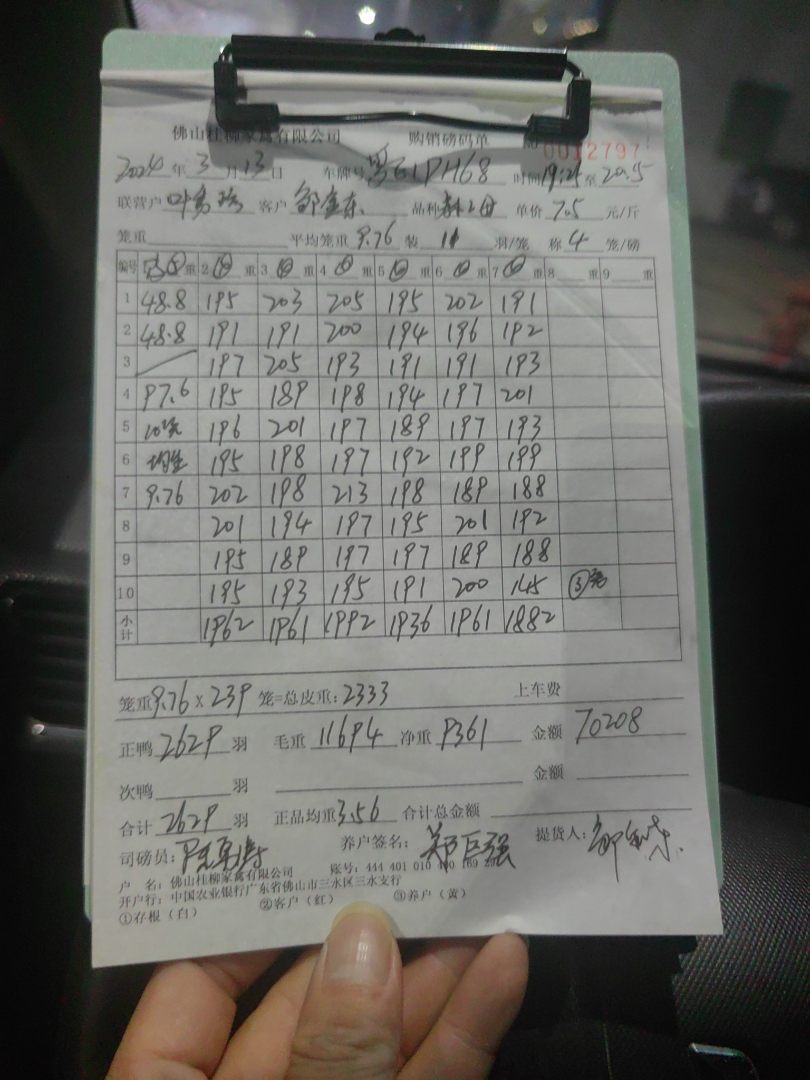 佛山桂柳家禽有限公司 购销磅码单 0012797
2024年3月13日 车牌号 粤E1PH68 时间19:25至20:5
联营户 客户 邹金东 品种 单价 7.5 元/斤
笼重 平均笼重 9.76 装 11 羽/笼 称 4 笼/磅
编号 重 2 重 3 重 4 重 5 重 6 重 7 重 8 重 9 重
1 48.8 195 203 205 195 202 191
2 48.8 191 191 200 194 196 192
3 197 205 193 191 191 193
4 97.6 195 189 198 194 197 201
5 10笼 196 201 197 189 197 193
6 均重 195 198 197 192 199 199
7 9.76 202 198 213 198 189 188
8 201 194 197 195 201 192
9 195 189 197 197 189 188
10 195 193 195 191 200 145 ③笼
小计 1962 1961 1992 1936 1961 1882
笼重9.76 x 239 笼=总皮重:2333 上车费
正鸭 2629 羽 毛重 11694 净重 9361 金额 70208
次鸭 羽 金额
合计 2629 羽 正品均重3.56 合计总金额
司磅员: 养户签名: 郑巨强 提货人: 邹金东
户 名: 佛山桂柳家禽有限公司 账号: 444 401 010
开户行: 中国农业银行广东省佛山市三水区三水支行
①存根（白） ②客户（红） ③养户（黄）